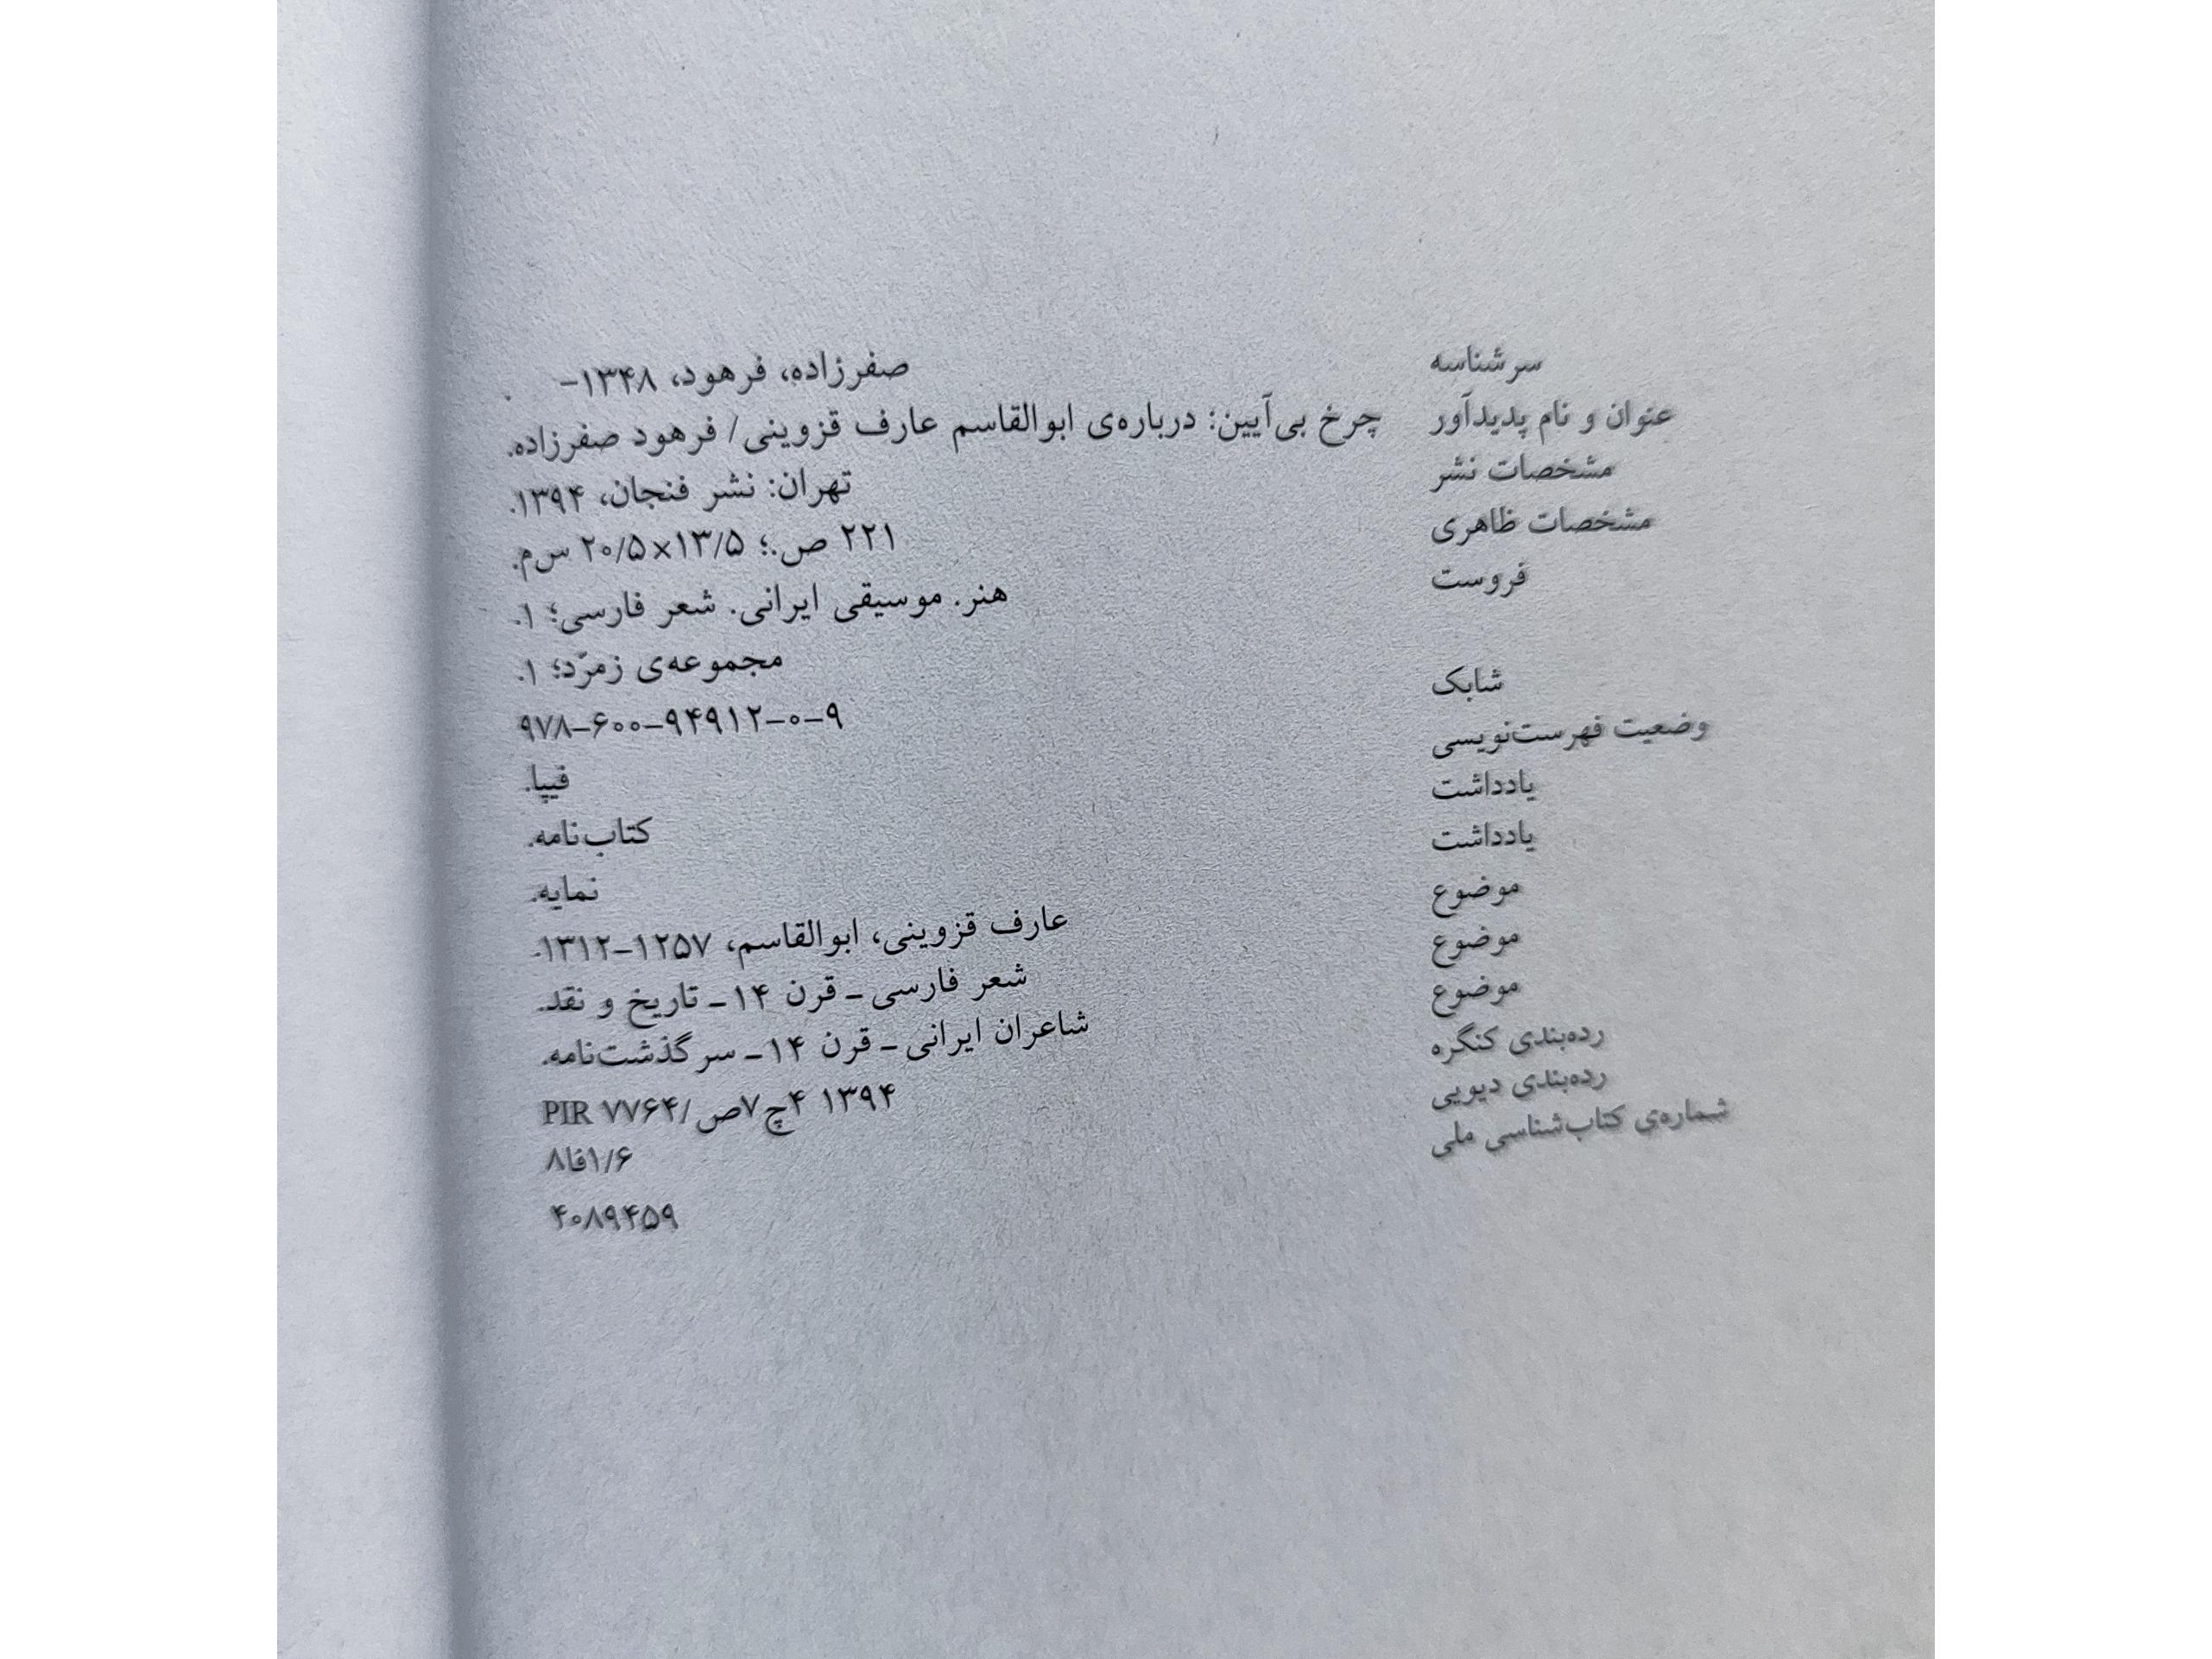 سرشناسه صفرزاده، فرهود، ۱۳۴۸-
عنوان و نام پدیدآور چرخ بی‌آیین: درباره‌ی ابوالقاسم عارف قزوینی/ فرهود صفرزاده.
مشخصات نشر تهران: نشر فنجان، ۱۳۹۴.
مشخصات ظاهری ۲۲۱ ص.؛ ۱۳/۵×۲۰/۵ س‌م.
فروست هنر. موسیقی ایرانی. شعر فارسی؛ ۱.
مجموعه‌ی زمرّد؛ ۱.
شابک ۹۷۸-۶۰۰-۹۴۹۱۲-۰-۹
وضعیت فهرست‌نویسی فیپا.
یادداشت کتاب‌نامه.
یادداشت نمایه.
موضوع عارف قزوینی، ابوالقاسم، ۱۲۵۷-۱۳۱۲.
موضوع شعر فارسی ـ قرن ۱۴ ـ تاریخ و نقد.
موضوع شاعران ایرانی ـ قرن ۱۴ ـ سرگذشت‌نامه.
رده‌بندی کنگره ۱۳۹۴ ۴چ۷ص/PIR ۷۷۶۴
رده‌بندی دیویی ۸فا۱/۶
شماره‌ی کتاب‌شناسی ملی ۴۰۸۹۴۵۹